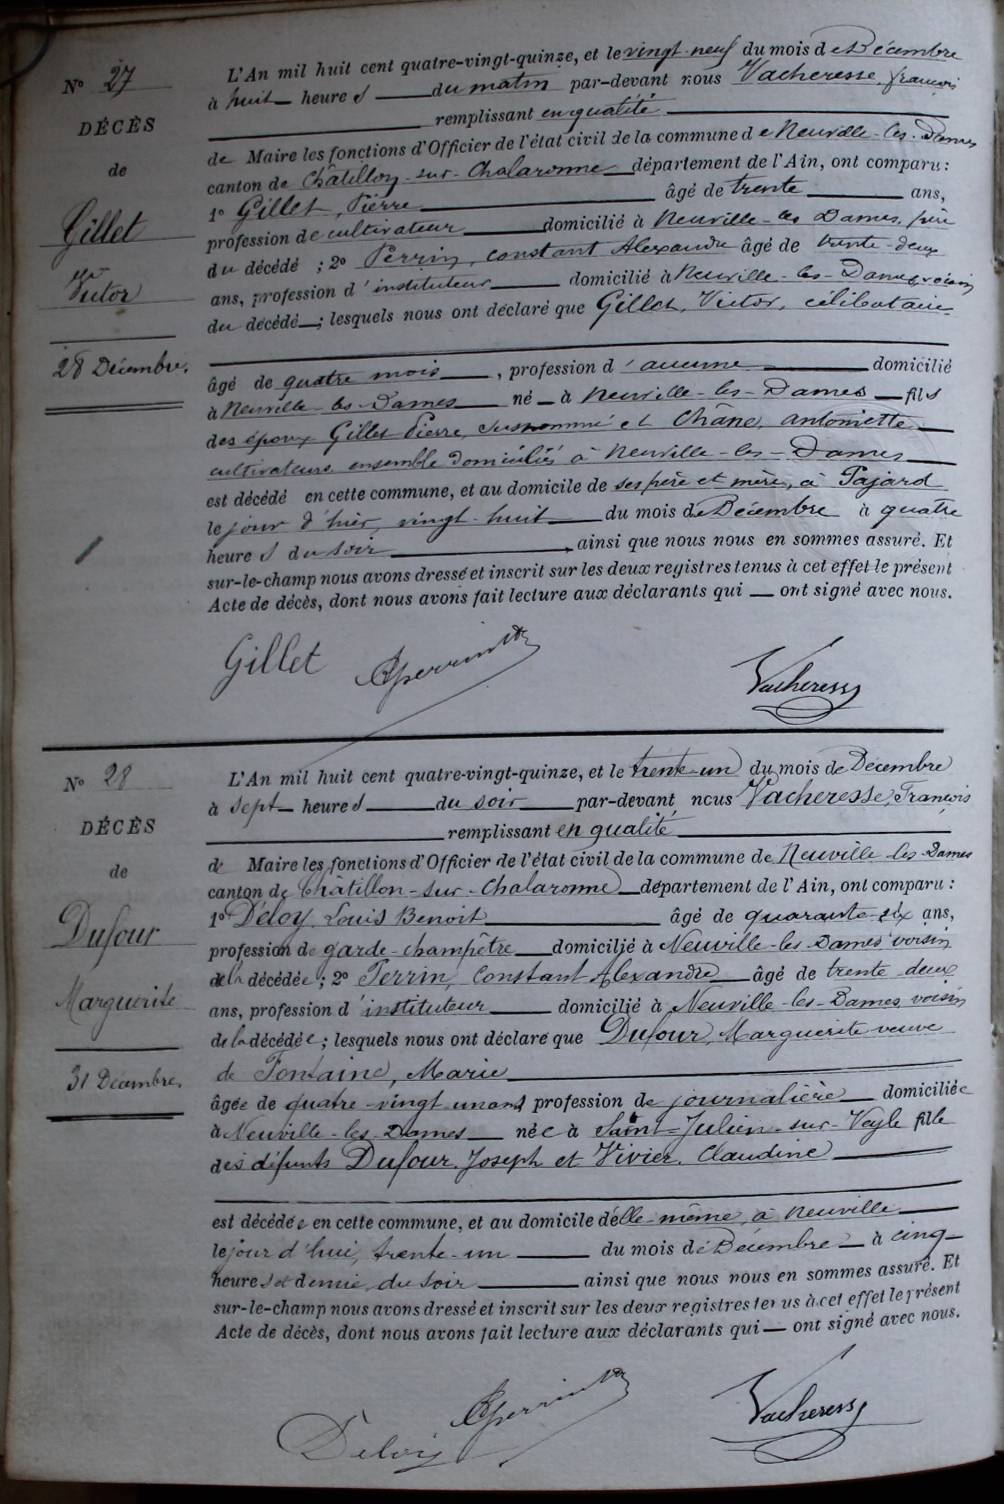 N° 27
DÉCÈS
de
Gillet
Victor
28 Décembre.
L'An mil huit cent quatre-vingt-quinze, et le vingt-neuf du mois de Décembre
à huit heures du matin par-devant nous Vacheresse, françois
remplissant en qualité
de Maire les fonctions d'Officier de l'état civil de la commune de Neuville-les-Dames
canton de Châtillon-sur-Chalaronne département de l'Ain, ont comparu :
1° Gillet, Pierre âgé de trente ans,
profession de cultivateur domicilié à Neuville-les Dames, père
du décédé ; 2° Perrin, constant Alexandre âgé de trente-deux
ans, profession d'instituteur domicilié à Neuville-les-Dames, voisin
du décédé ; lesquels nous ont déclaré que Gillet, Victor, célibataire
âgé de quatre mois, profession d'aucune domicilié
à Neuville-les-Dames né à Neuville-les-Dames fils
des époux Gillet Pierre, susnommé et Chanel, antoinette
cultivateurs ensemble domiciliés à Neuville-les-Dames
est décédé en cette commune, et au domicile de ses père et mère, à Pajard
le jour d'hier, vingt-huit du mois de Décembre à quatre
heures du soir, ainsi que nous nous en sommes assuré. Et
sur-le-champ nous avons dressé et inscrit sur les deux registres tenus à cet effet le présent
Acte de décès, dont nous avons fait lecture aux déclarants qui ont signé avec nous.
Gillet CPerrin Vacheresse
N° 28
DÉCÈS
de
Dufour
Marguerite
31 Décembre.
L'An mil huit cent quatre-vingt-quinze, et le trente-un du mois de Décembre
à sept heures du soir par-devant nous Vacheresse, François
remplissant en qualité
de Maire les fonctions d'Officier de l'état civil de la commune de Neuville-les-Dames
canton de Châtillon-sur-Chalaronne département de l'Ain, ont comparu :
1° Déloy Louis Benoit âgé de quarante-six ans,
profession de garde-champêtre domicilié à Neuville-les-Dames voisin
de la décédée ; 2° Perrin, Constant Alexandre âgé de trente-deux
ans, profession d'instituteur domicilié à Neuville-les-Dames, voisin
de la décédée ; lesquels nous ont déclaré que Dufour, Marguerite veuve
de Fontaine, Marie
âgée de quatre-vingt-un ans profession de journalière domiciliée
à Neuville-les-Dames née à Saint-Julien-sur-Veyle fille
des défunts Dufour, Joseph et Vivier, Claudine
est décédée en cette commune, et au domicile d'elle-même, à Neuville
le jour d'hui, trente-un du mois de Décembre à cinq
heures et demie du soir ainsi que nous nous en sommes assuré. Et
sur-le-champ nous avons dressé et inscrit sur les deux registres tenus à cet effet le présent
Acte de décès, dont nous avons fait lecture aux déclarants qui ont signé avec nous.
Deloy CPerrin Vacheresse